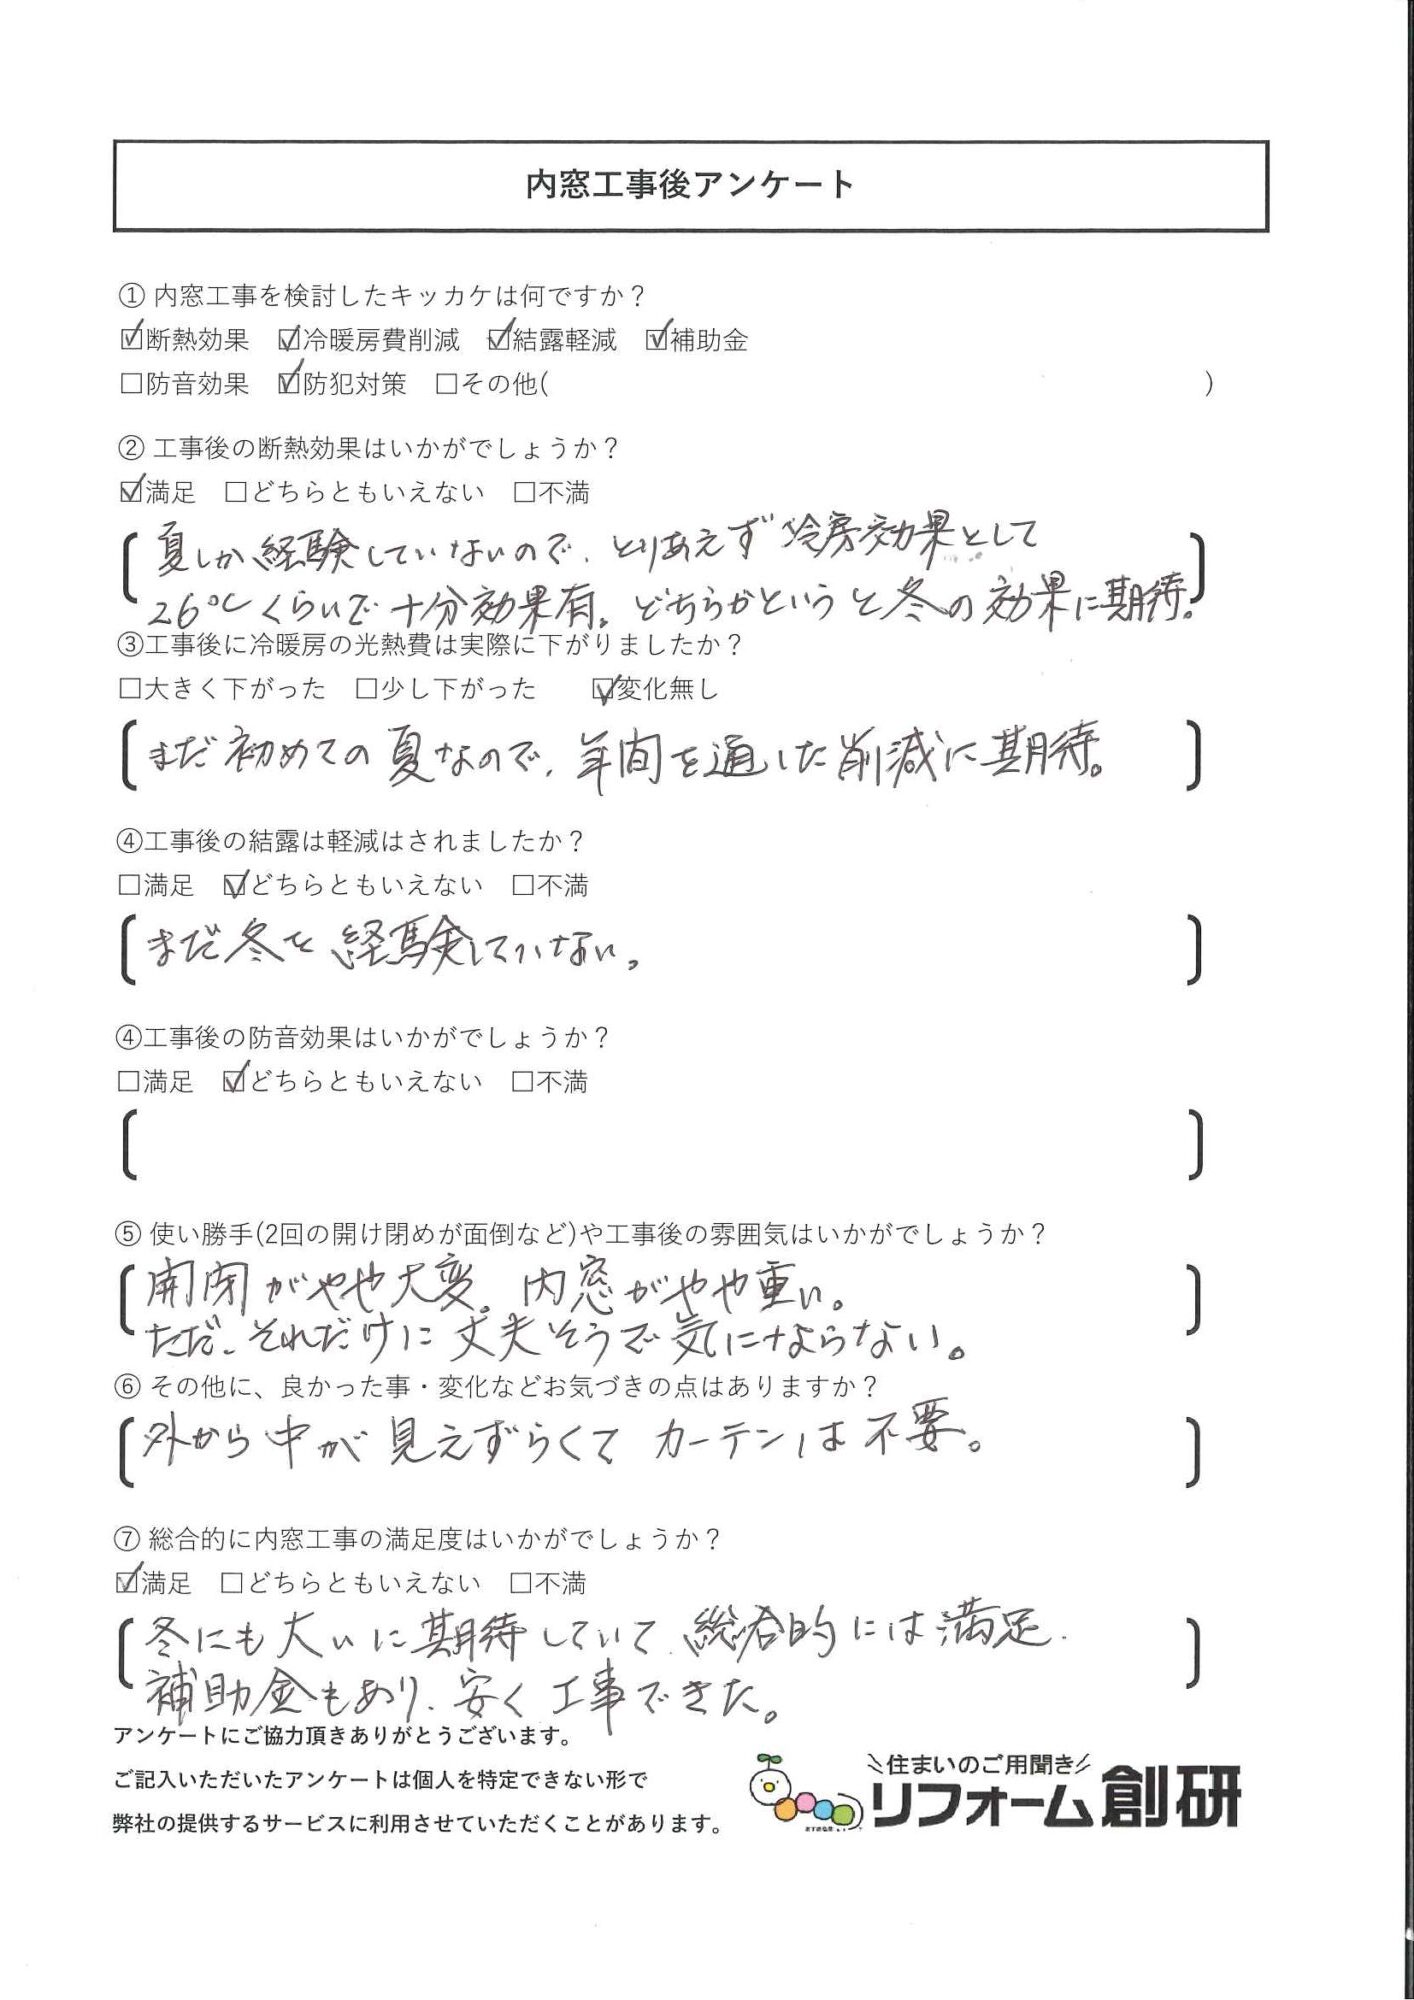 内窓工事後アンケート
① 内窓工事を検討したキッカケは何ですか？
☑断熱効果 ☑冷暖房費削減 ☑結露軽減 ☑補助金
□防音効果 ☑防犯対策 □その他( )
② 工事後の断熱効果はいかがでしょうか？
☑満足 □どちらともいえない □不満
夏しか経験していないので、とりあえず冷房効果として
26℃くらいで十分効果有。どちらかというと冬の効果に期待。
③工事後に冷暖房の光熱費は実際に下がりましたか？
□大きく下がった □少し下がった ☑変化無し
まだ初めての夏なので、年間を通した削減に期待。
④工事後の結露は軽減はされましたか？
□満足 ☑どちらともいえない □不満
まだ冬を経験していない。
④工事後の防音効果はいかがでしょうか？
□満足 ☑どちらともいえない □不満
⑤ 使い勝手(2回の開け閉めが面倒など)や工事後の雰囲気はいかがでしょうか？
開閉がやや大変。内窓がやや重い。
ただ、それだけに丈夫そうで気にならない。
⑥ その他に、良かった事・変化などお気づきの点はありますか？
外から中が見えずらくてカーテンは不要。
⑦ 総合的に内窓工事の満足度はいかがでしょうか？
☑満足 □どちらともいえない □不満
冬にも大いに期待していて、総合的には満足.
補助金もあり、安く工事できた。
アンケートにご協力頂きありがとうございます。
ご記入いただいたアンケートは個人を特定できない形で
弊社の提供するサービスに利用させていただくことがあります。
＼住まいのご用聞き／
リフォーム創研